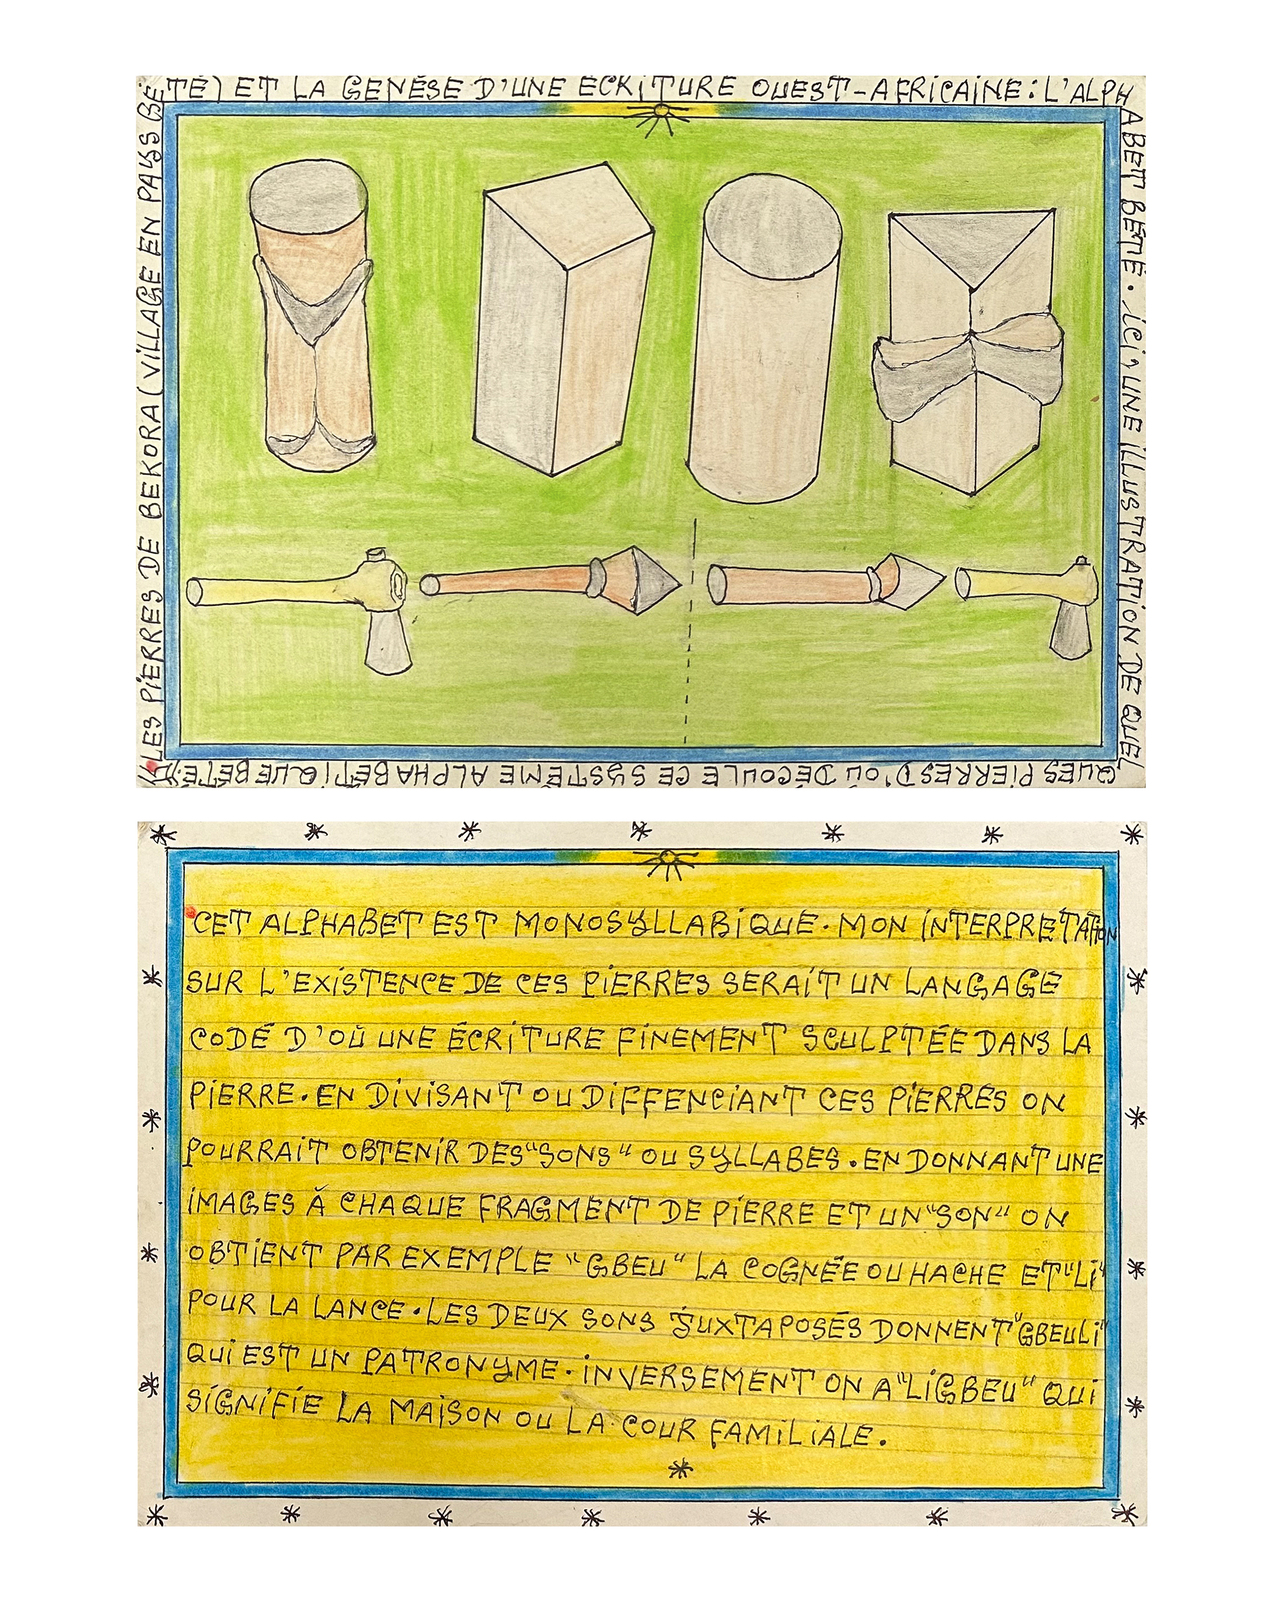 LES PIERRES DE BEKORA (VILLAGE EN PAYS BÉ
TÉ) ET LA GENÈSE D'UNE ECRITURE OUEST-AFRICAINE: L'ALPH
ABET BÉTÉ. ICI, UNE ILLUSTRATION DE QUEL
QUES PIERRES D'OU DÉCOULE CE SYSTÈME ALPHABÉTIQUE BÉTÉ.
CET ALPHABET EST MONOSYLLABIQUE. MON INTERPRETATION
SUR L'EXISTENCE DE CES PIERRES SERAIT UN LANGAGE
CODÉ D'OÙ UNE ÉCRITURE FINEMENT SCULPTÉE DANS LA
PIERRE. EN DIVISANT OU DIFFENCIANT CES PIERRES ON
POURRAIT OBTENIR DES "SONS" OU SYLLABES. EN DONNANT UNE
IMAGES À CHAQUE FRAGMENT DE PIERRE ET UN "SON" ON
OBTIENT PAR EXEMPLE "GBEU" LA COGNÉE OU HACHE ET "LI"
POUR LA LANCE. LES DEUX SONS JUXTAPOSÉS DONNENT "GBEULI"
QUI EST UN PATRONYME. INVERSEMENT ON A "LIGBEU" QUI
SIGNIFIE LA MAISON OU LA COUR FAMILIALE.